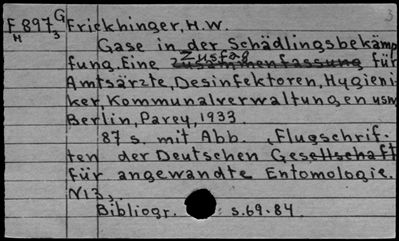 F897 G Frickhinger, H.W. 3
H 3
Gase in der Schädlingsbekämp
fung. Eine Zusfag für
Amtsärzte, Desinfektoren, Hygieni-
ker, Kommunalverwaltungen usw.
Berlin, Parey, 1933.
87 s. mit Abb. „Flugschrif-
ten der Deutschen Gesellschaft
für angewandte Entomologie.
N13,
Bibliogr. : s.69-84.